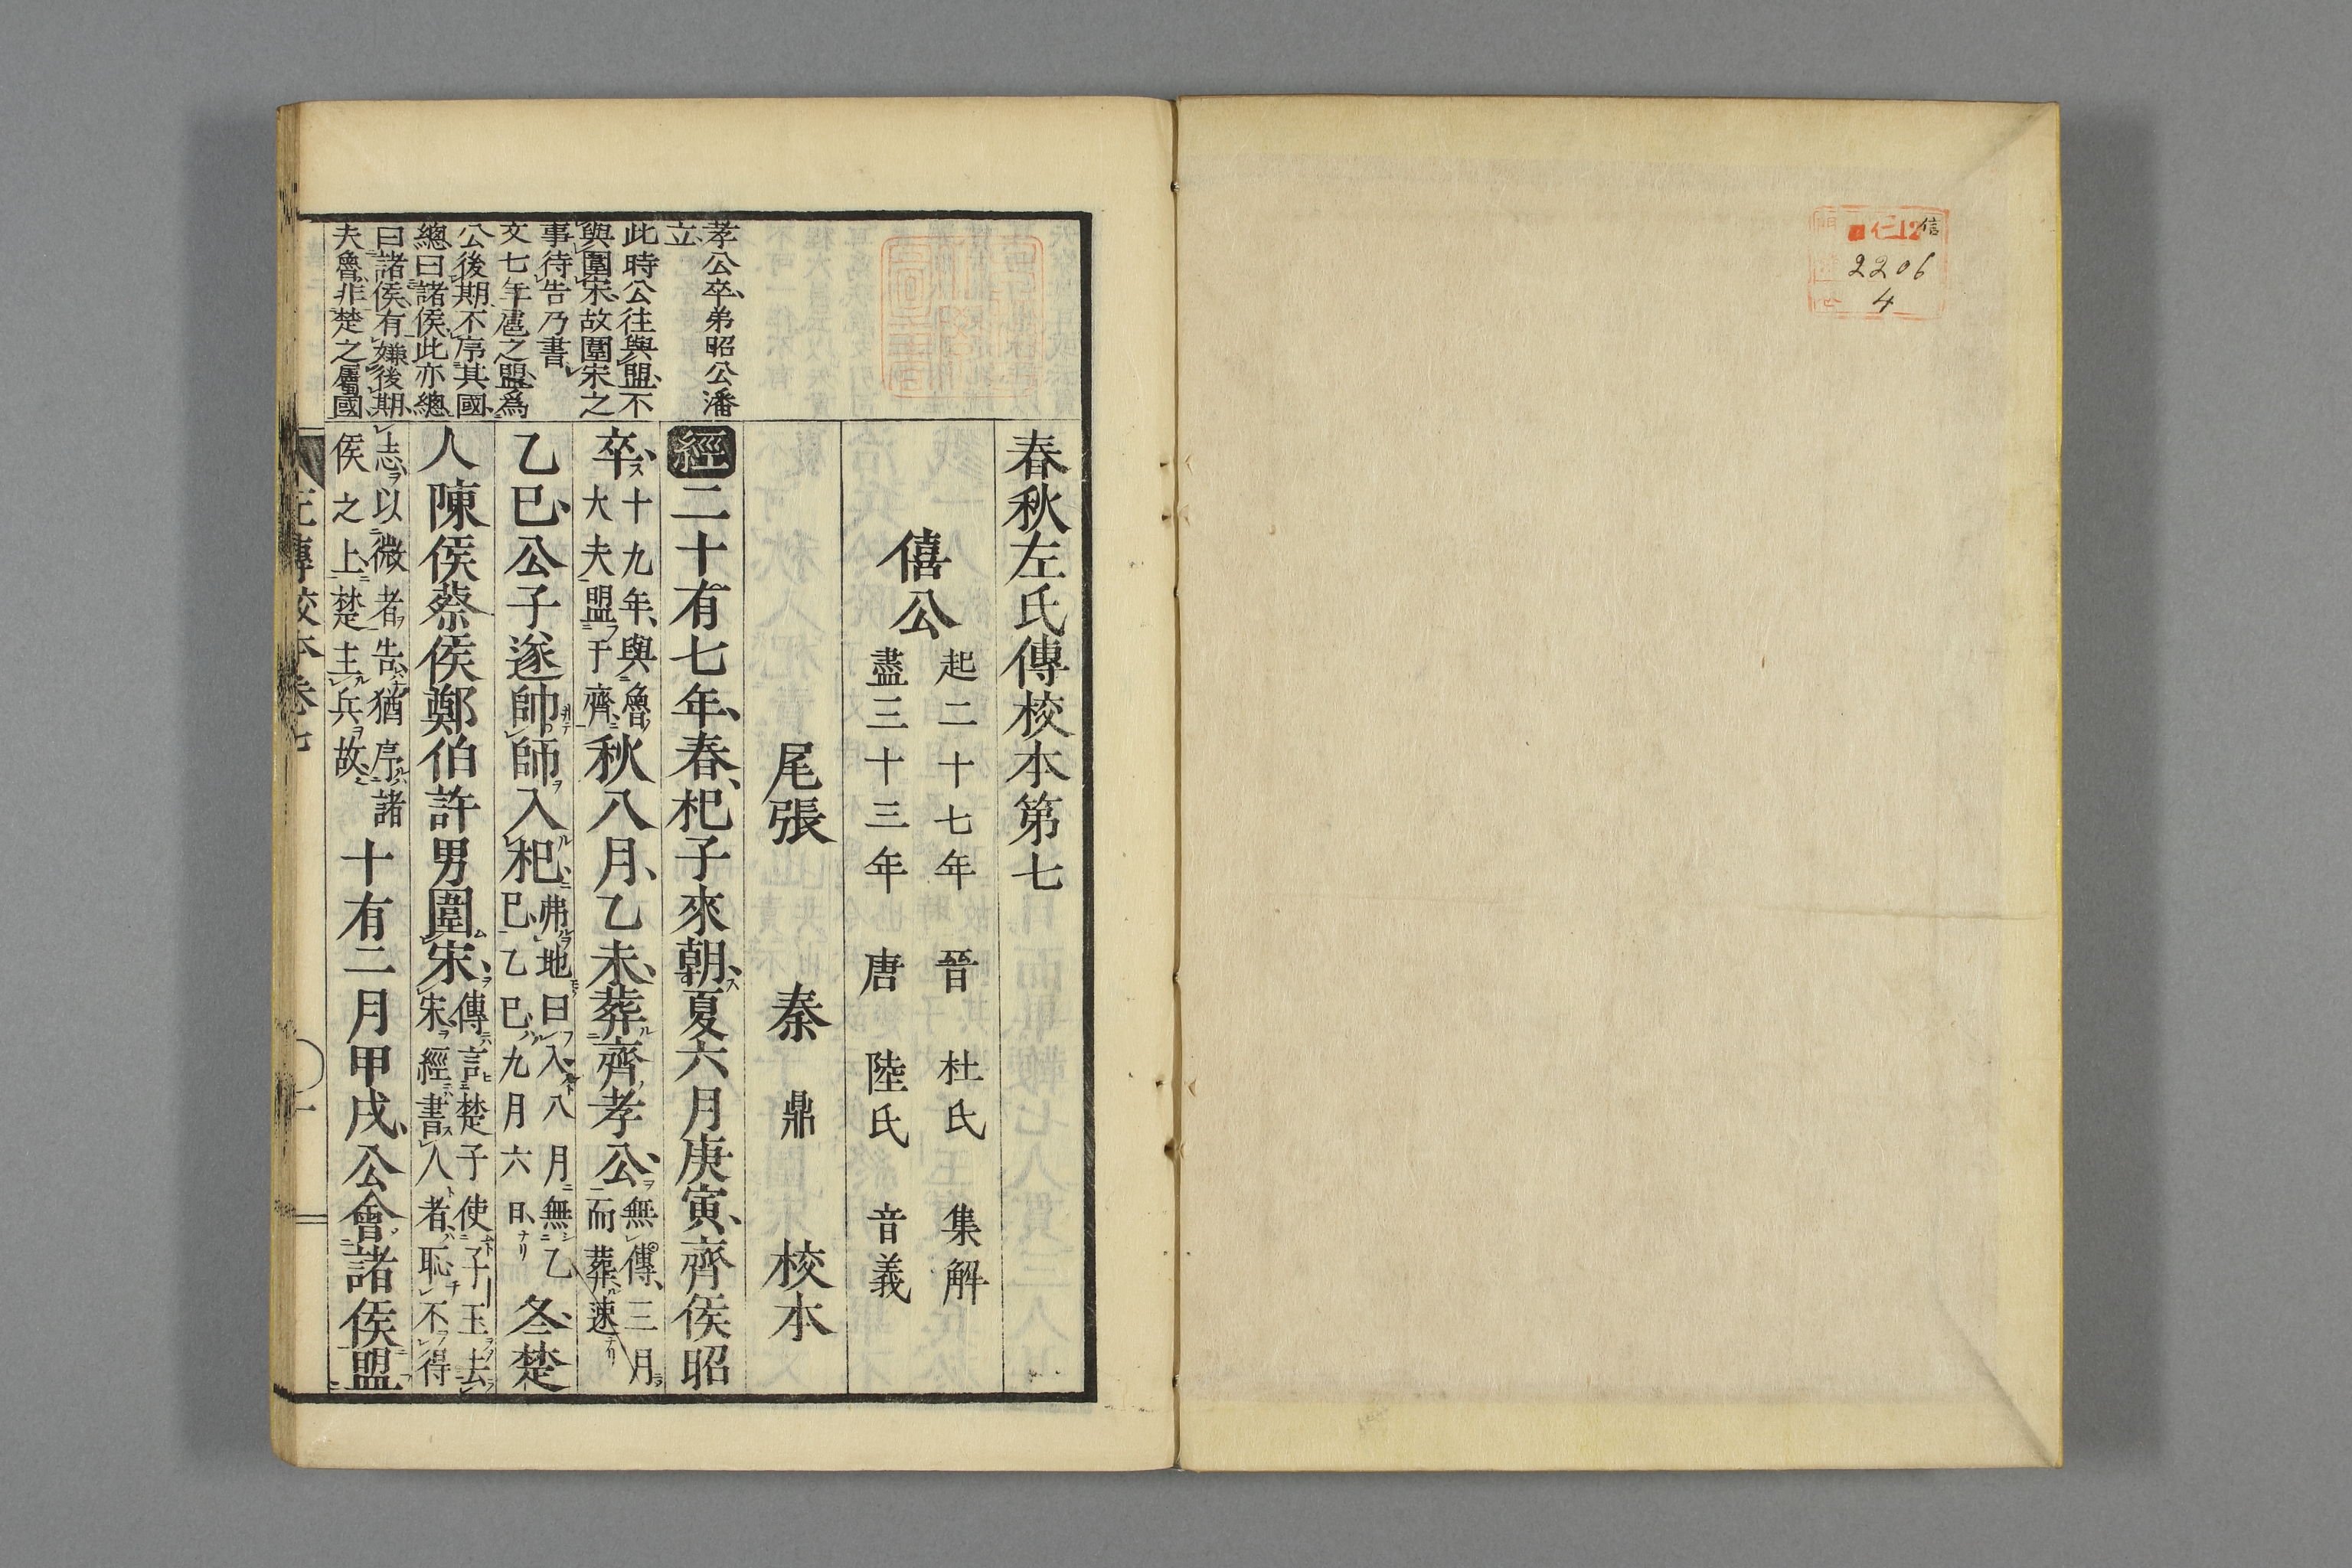 信
仁12
2206
4
春秋左氏傳校本第七
僖公
起二十七年 晉 杜氏 集解
盡三十三年 唐 陸氏 音義
尾張 秦 鼎 校本
孝公卒弟昭公潘
立
此時公往與盟不
與圍宋故圍宋之
事待告乃書
文七年扈之盟爲
公後期不序其國
總曰諸侯此亦總
曰諸侯有嫌後期
夫魯非楚之屬國
經二十有七年春杞子來朝夏六月庚寅齊侯昭
卒十九年與魯大夫盟于齊秋八月乙未葬齊孝公無傳三月而葬速
乙巳公子遂帥師入杞弗地曰入八月無乙巳乙巳九月六日冬楚
人陳侯蔡侯鄭伯許男圍宋傳言楚子使子玉去宋經書人者恥不得
志以微者告猶序諸侯之上楚主兵故十有二月甲戌公會諸侯盟